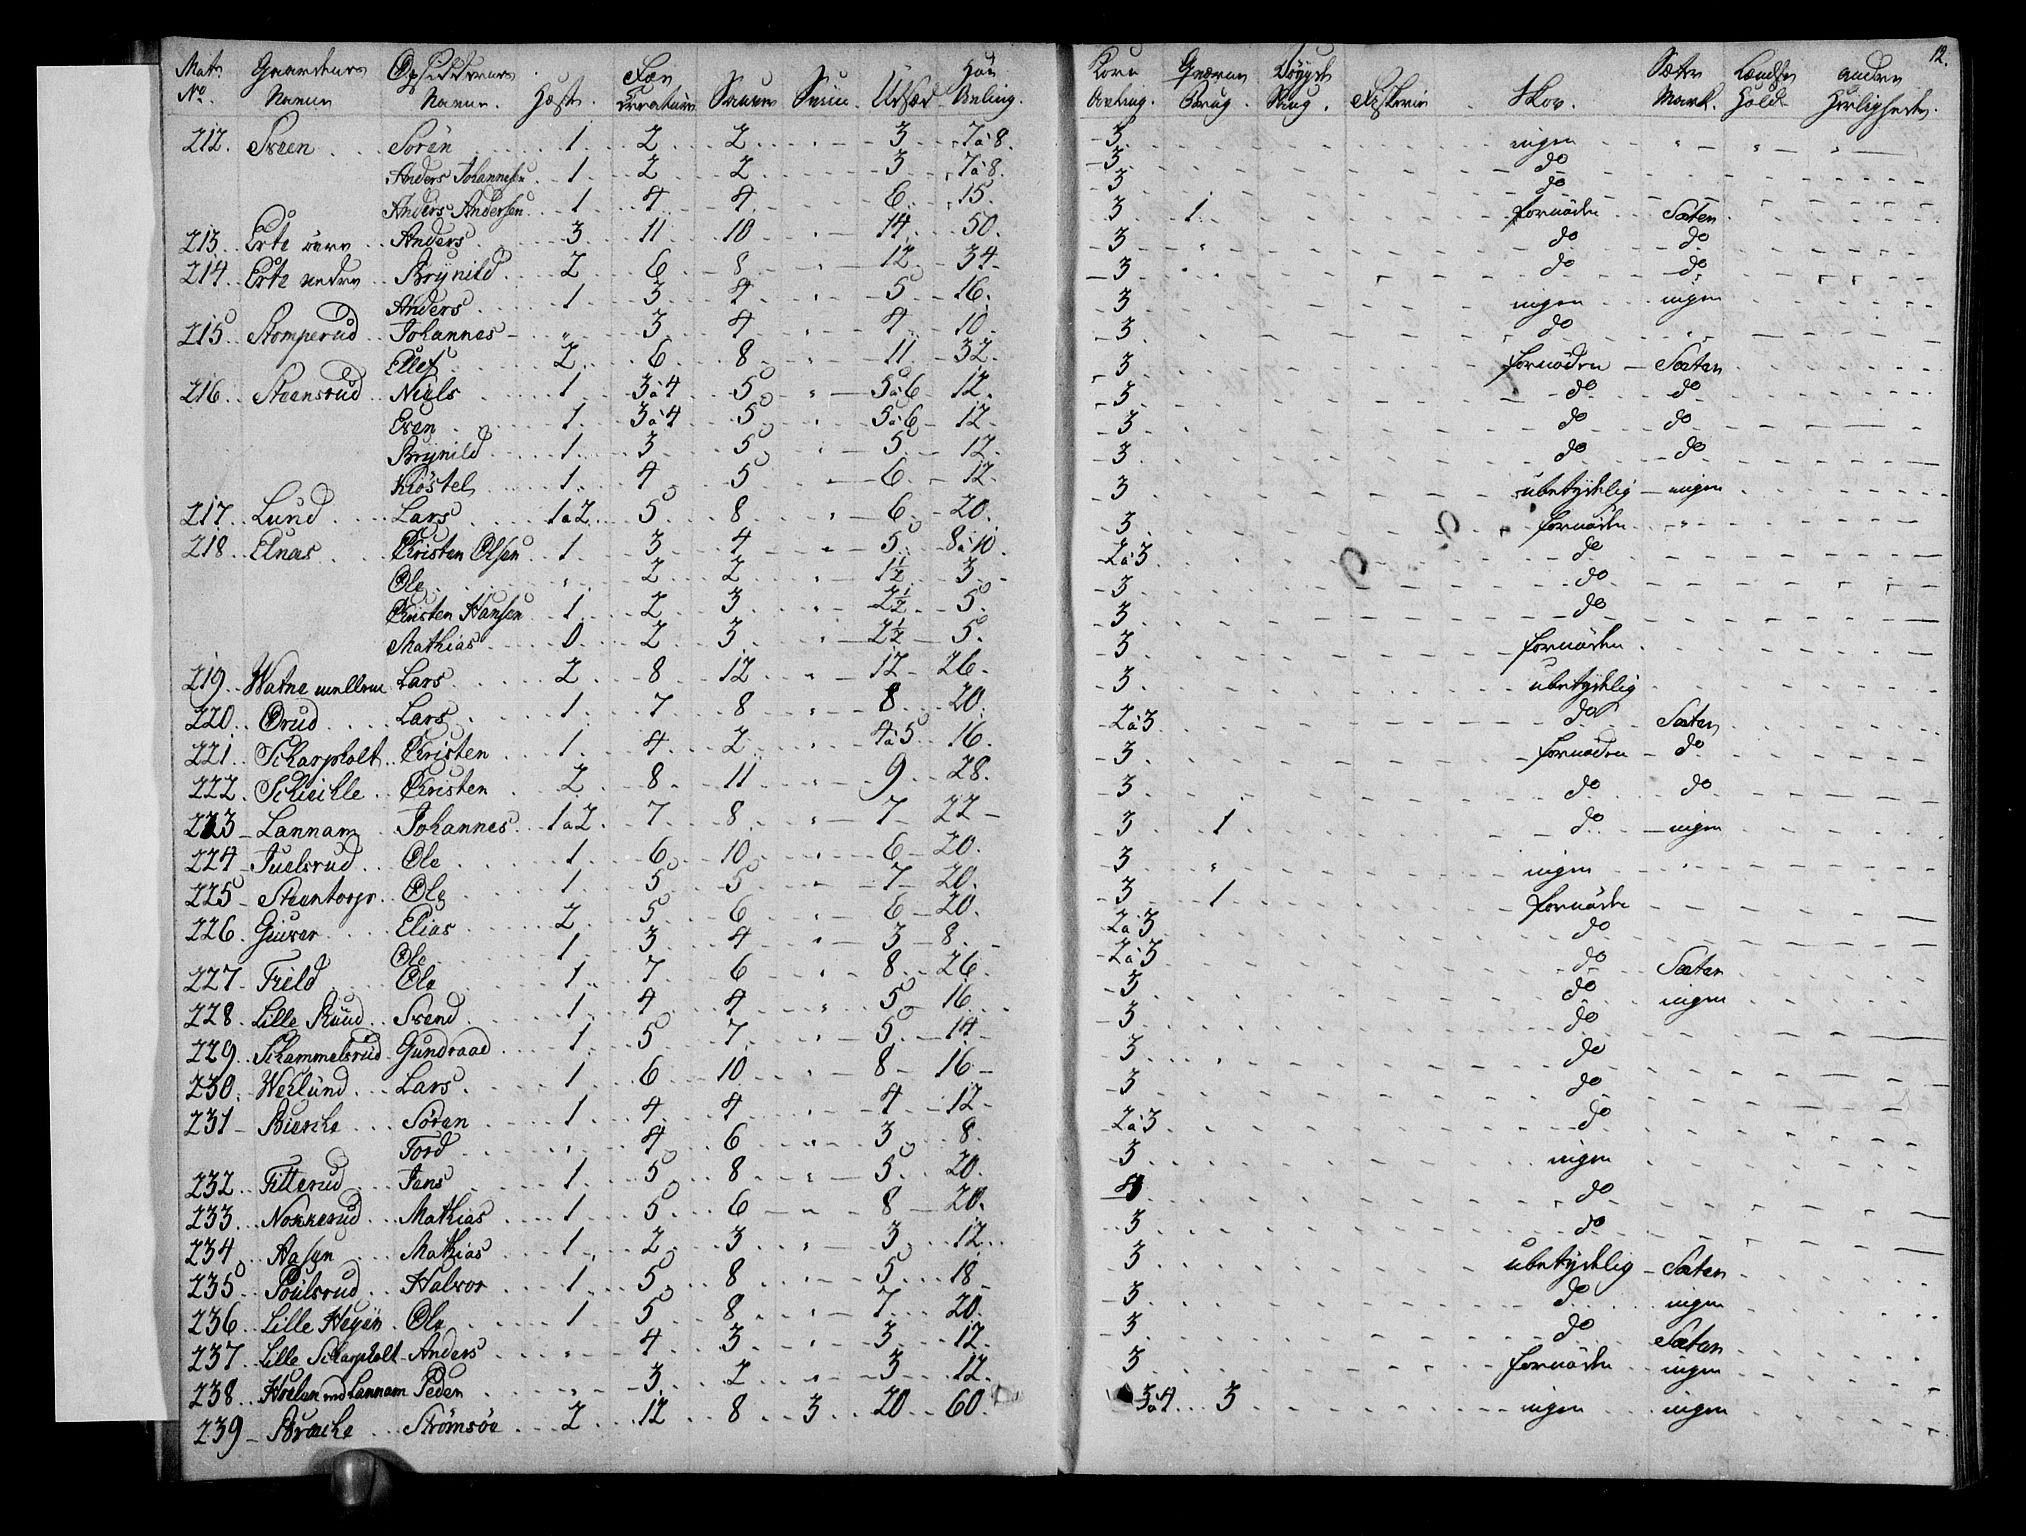 12.
Mat: Gaardens Opsidderens Fæe Høe Korn Qværne Bøygde Sæter Lændse andre
No. Navne Navne. Hæst. Creature Saueer Sviin Udsæd Avling. Avling. Brug. Brug. Fiskerie Skov. Mark. Hold Herligheder.
212. Sveen Soren 1. 2 2 3 7 à 8. 3 ingen
Anders Johannesen 1. 2 2 3 7 à 8. 3 do
Anders Andersen 1 4 4 6 15. 3 do
213. Erte övre Anders 3 11 10 14 50. 3 1 fornöden Sæter
214. Erte nedre Brÿnild 2 6 8 12 34 3 do do
Anders 1 3 4 5 16. 3 do do
215 Stomperud Johannes „ 3 4 4 10 3 ingen ingen
Ellef 2 6 8 11 32. 3 do
216 Steensrud Niels 1 3 à 4 5 5 à 6 12. 3 fornöden Sæter
Even 1 3 à 4 5 5 à 6 12 3 do do
Brÿnild 1 3 5 5 12. 3 do do
Kiöstel 1. 4 5 6 12. 3 do do
217 Lund Lars 1 à 2 5 8 6 20. 3 ubetydelig ingen
218 Elnæs Christen Olsen 1 3 4 5 8 à 10. 3 fornöden
Ole „ 2 2 1½ 3 2 à 3 do
Christen Hansen 1 2 3 2½ 5. 3 do
Mathias 0 2 3 2½ 5. 3 do
219 Watne mellem Lars 2 8 12 12 26. 3 fornöden
220 Örud Lars 1 7 8 8 20. 3 ubetydelig
221 Scharpholt Christen 1 4 2 4 à 5 16. 2 à 3 do Sæter
222 Schieille Christen 2 8 11 9 28. 3 fornöden do
223 Lannam Johannes 1 à 2 7 8 7 22 3 do do
224 Juelsrud Ole 1 6 10 6 20. 3 1 do ingen
225 Steentorp Ole 1 5 5 7 20. 3 „ ingen
226. Giuver Elias 2 5 6 6 20. 3 1 fornöden
Ole 1 3 4 3 8. 2 à 3 do
227 Field Ole 1 7 6 8 26 2 à 3 do Sæter
228. Lille Ruud Svend 1 4 4 5 16 3 do ingen
229 Schammelsrud Gundraad 1 5 7 5 14 3 do
230 Weilund Lars 1 6 10 8 16 3 do
231 Biercke Sören 1 4 4 4 12 3 do
Tord „ 4 6 3 8. 2 à 3 do
232 Titterud Jens 1 5 8 5 20. 3 ingen
233 Nokkerud Mathias 1 5 6 8 20. 4 do
234 Aasen Mathias 1 2 3 3 12 3 do
235 Poulsrud Halvor 1 5 8 5 18 3 ubetydelig Sæter
236 Lille Heyen Ole 1 5 8 7 20. 3 do ingen
237 Lille Scharpholt Anders „ 4 3 3 12 3 do Sæter
238 Hvelen ved Lannam Peder „ 3 2 3 12. 3 fornöden ingen
239 Bracke Strömsöe 2 12 8 3 20 60. 3 à 4 3 ingen ingen